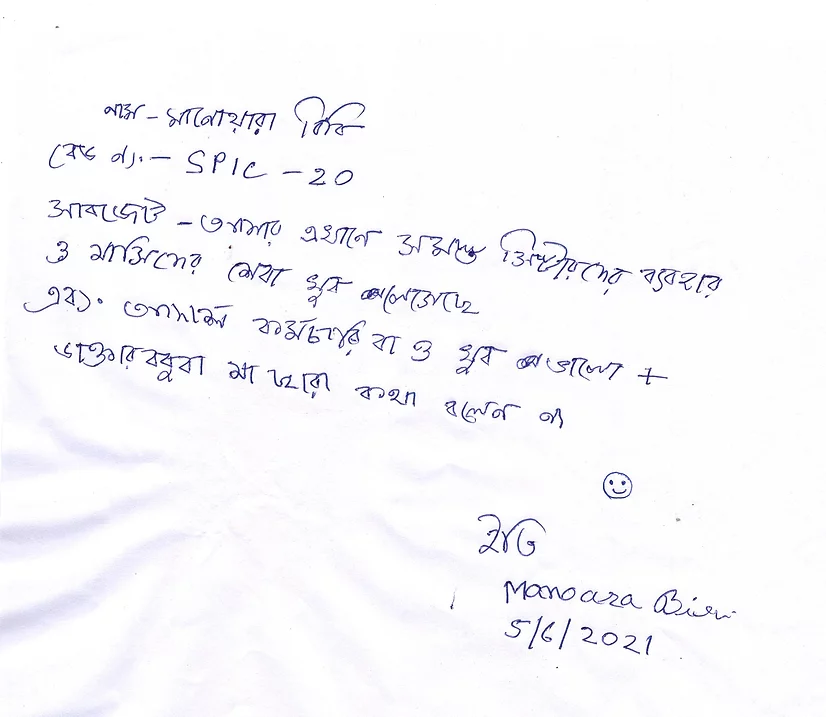 নাম - মানোয়ারা বিবি
বেড নং - SPIC - 20
সাবজেট - আমার এখানে সমস্ত সিস্টারদের ব্যবহার
ও মাসিদের সেবা খুব ভালো
এবং কর্মচারি রা ও খুব ভালো +
ডাক্তার বাবুরা মা ছাড়া কথা বলেন না
ইতি
Manoara Bibi
5/6/2021